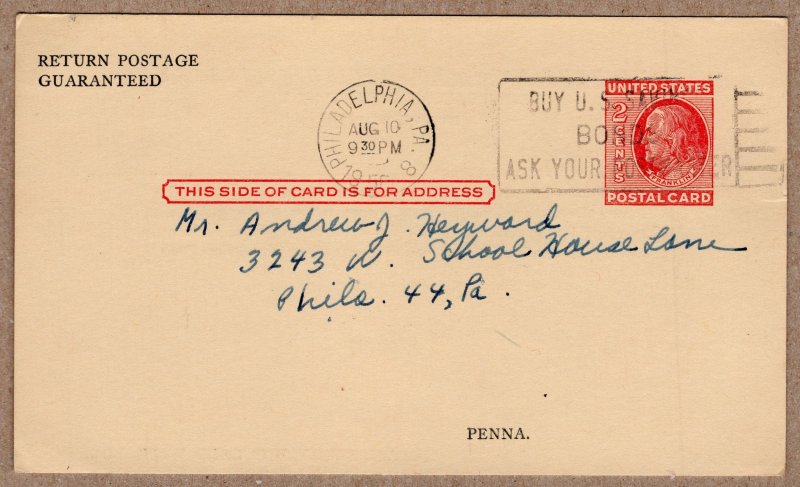 RETURN POSTAGE
GUARANTEED
PHILADELPHIA, PA.
AUG 10
9 30 PM
8
BUY U.S.
ASK YOUR
UNITED STATES
2 CENTS
FRANKLIN
POSTAL CARD
THIS SIDE OF CARD IS FOR ADDRESS
Mr. Andrew J. Heyward
3243 W. School House Lane
Phila. 44, Pa.
PENNA.